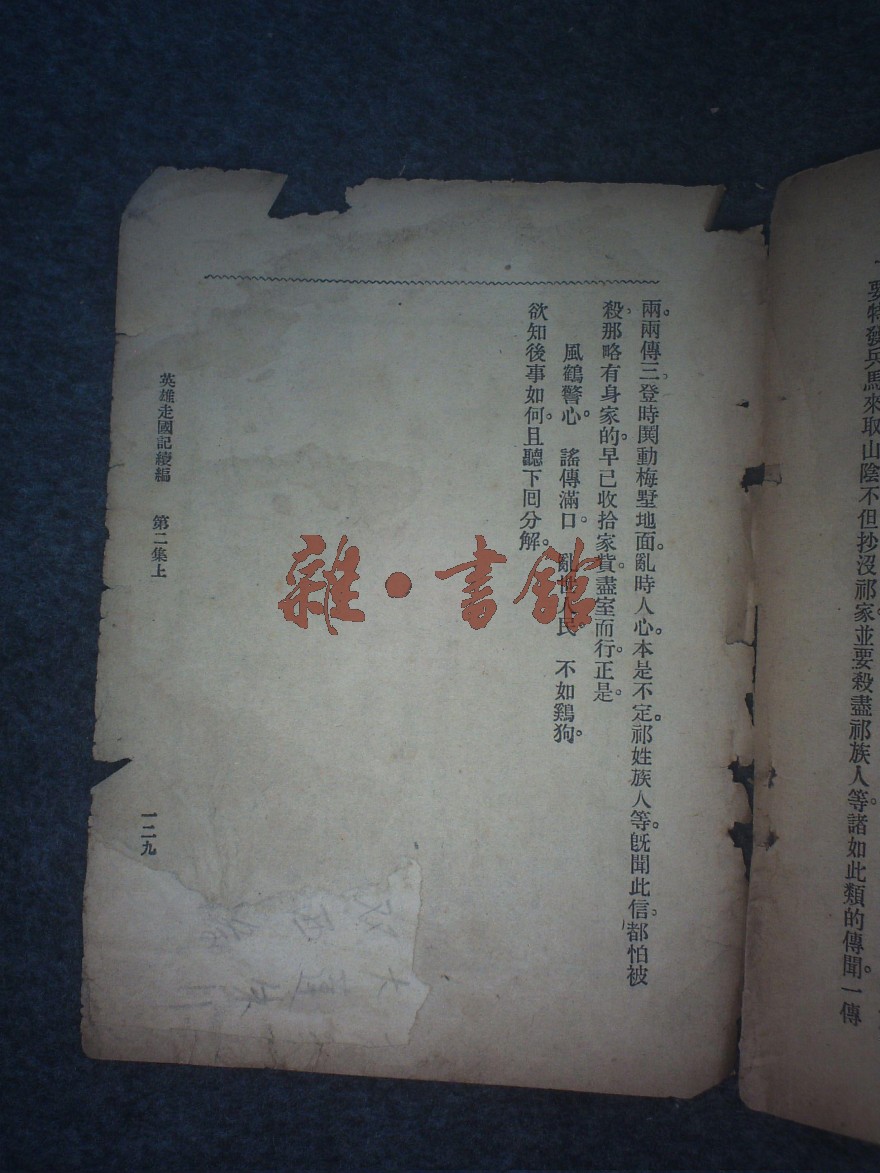 要特發兵馬來取山陰不但抄沒祁家。並要殺盡祁族人等。諸如此類的傳聞。一傳
兩。兩傳三。登時鬨動梅墅地面。亂時人心。本是不定。祁姓族人等。旣聞此信。都怕被
殺。那略有身家的。早已收拾家貲。盡室而行。正是。
風鶴警心。　謠傳滿口。　亂世人民。　不如鷄狗。
欲知後事如何。且聽下囘分解。
英雄走國記續編　第二集上
一二九
雜·書館